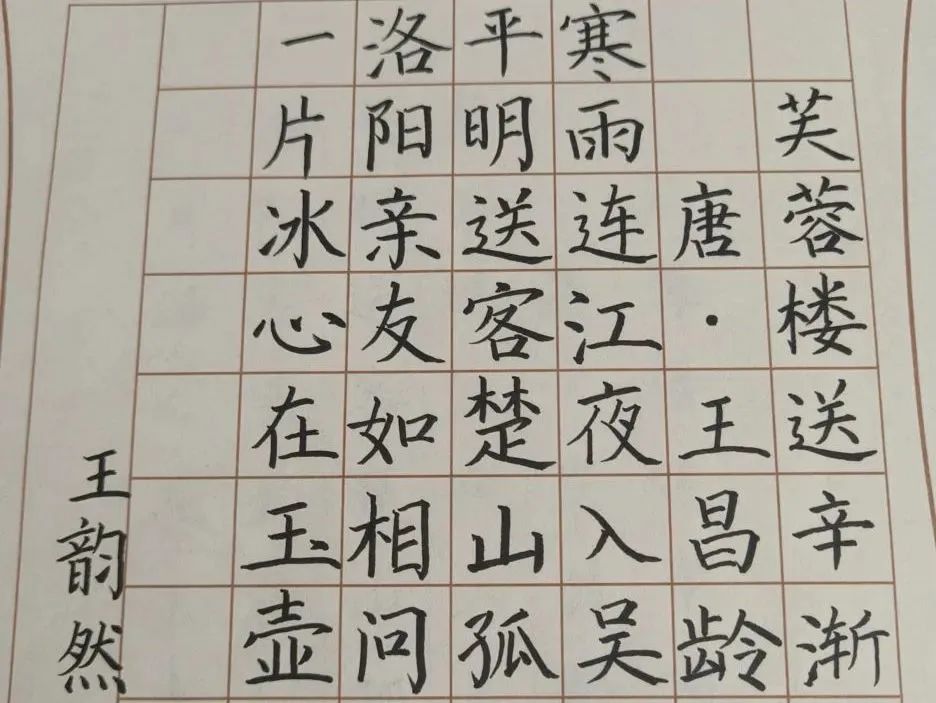 芙蓉楼送辛渐
唐·王昌龄
寒雨连江夜入吴
平明送客楚山孤
洛阳亲友如相问
一片冰心在玉壶
王韵然